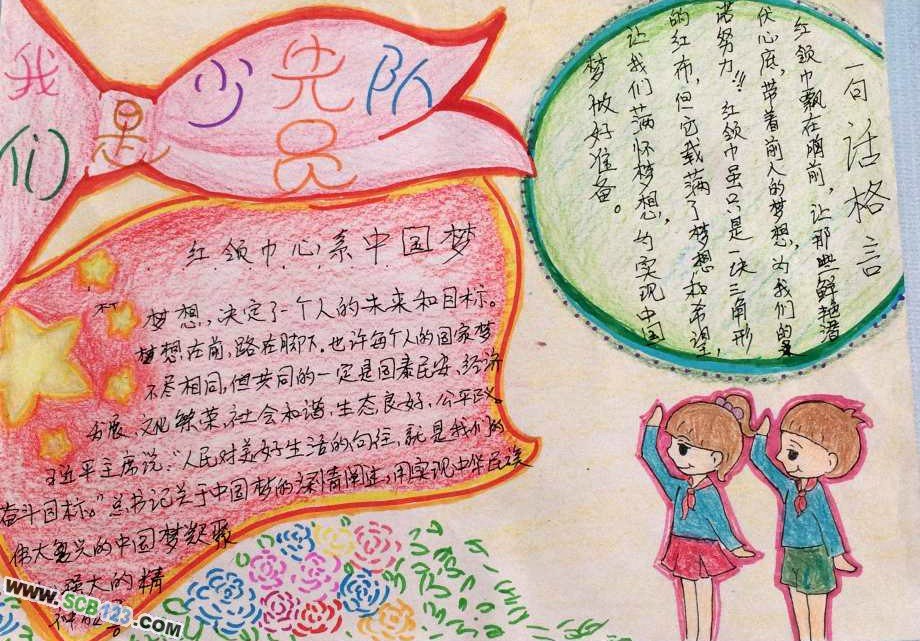 我们是少先队员
红领巾心系中国梦
梦想,决定了一个人的未来和目标。
梦想在前,路在脚下。也许每个人的国家梦
不尽相同,但共同的一定是国泰民安、经济
发展、文化繁荣、社会和谐、生态良好、公平正义。
习近平主席说:“人民对美好生活的向往,就是我们的
奋斗目标。”总书记关于中国梦的深情阐述,用实现中华民族
伟大复兴的中国梦凝聚
强大的精
神
一句话格言
红领巾飘在胸前,让那些鲜艳潜
伏心底,带着前人的梦想,为我们的
诺努力!!红领巾虽只是一块三角形
的红布,但它载满了梦想和希望,
让我们满怀梦想,为实现中国
梦做好准备。
www.SCB123.COM